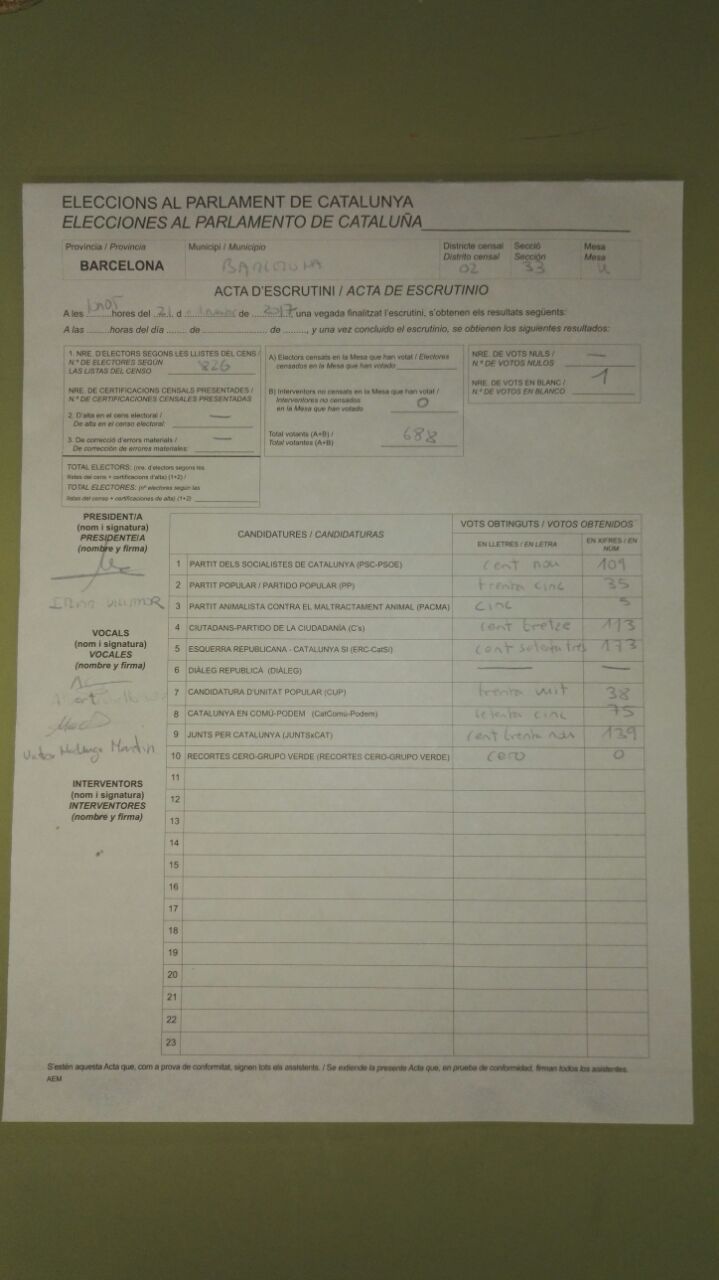 ELECCIONS AL PARLAMENT DE CATALUNYA
ELECCIONES AL PARLAMENTO DE CATALUÑA
Provincia / Provincia
BARCELONA
Municipi / Municipio
BARCELONA
Districte censal
Distrito censal
02
Secció
Sección
33
Mesa
Mesa
U
ACTA D'ESCRUTINI / ACTA DE ESCRUTINIO
A les hores del 21 d de 2017 una vegada finalitzat l'escrutini, s'obtenen els resultats següents:
A las ........ horas del día ....... de .................... de ........, y una vez concluido el escrutinio, se obtienen los siguientes resultados:
1. NRE. D'ELECTORS SEGONS LES LLISTES DEL CENS /
N.º DE ELECTORES SEGÚN
LAS LISTAS DEL CENSO 826
NRE. DE CERTIFICACIONS CENSALS PRESENTADES /
N.º DE CERTIFICACIONES CENSALES PRESENTADAS
2. D'alta en el cens electoral / —
De alta en el censo electoral:
3. De correcció d'errors materials / —
De corrección de errores materiales:
TOTAL ELECTORS: (nre. d'electors segons les
llistes del cens + certificacions d'alta) (1+2) /
TOTAL ELECTORES: (nº electores según las
listas del censo + certificaciones de alta) (1+2)
A) Electors censats en la Mesa que han votat / Electores
censados en la Mesa que han votado
B) Interventors no censats en la Mesa que han votat /
Interventores no censados
en la Mesa que han votado 0
Total votants (A+B) /
Total votantes (A+B) 688
NRE. DE VOTS NULS / —
N.º DE VOTOS NULOS
NRE. DE VOTS EN BLANC / 1
N.º DE VOTOS EN BLANCO
PRESIDENT/A
(nom i signatura)
PRESIDENTE/A
(nombre y firma)
VOCALS
(nom i signatura)
VOCALES
(nombre y firma)
INTERVENTORS
(nom i signatura)
INTERVENTORES
(nombre y firma)
CANDIDATURES / CANDIDATURAS
VOTS OBTINGUTS / VOTOS OBTENIDOS
EN LLETRES / EN LETRA
EN XIFRES / EN NÚM
1 PARTIT DELS SOCIALISTES DE CATALUNYA (PSC-PSOE) cent nou 109
2 PARTIT POPULAR / PARTIDO POPULAR (PP) trenta cinc 35
3 PARTIT ANIMALISTA CONTRA EL MALTRACTAMENT ANIMAL (PACMA) cinc 5
4 CIUTADANS-PARTIDO DE LA CIUDADANÍA (C's) cent tretze 113
5 ESQUERRA REPUBLICANA - CATALUNYA SI (ERC-CatSí) cent setenta tres 173
6 DIÀLEG REPUBLICÀ (DIÀLEG) — —
7 CANDIDATURA D'UNITAT POPULAR (CUP) trenta vuit 38
8 CATALUNYA EN COMÚ-PODEM (CatComú-Podem) setenta cinc 75
9 JUNTS PER CATALUNYA (JUNTSxCAT) cent trenta nou 139
10 RECORTES CERO-GRUPO VERDE (RECORTES CERO-GRUPO VERDE) cero 0
11
12
13
14
15
16
17
18
19
20
21
22
23
S'estén aquesta Acta que, com a prova de conformitat, signen tots els assistents. / Se extiende la presente Acta que, en prueba de conformidad, firman todos los asistentes.
AEM